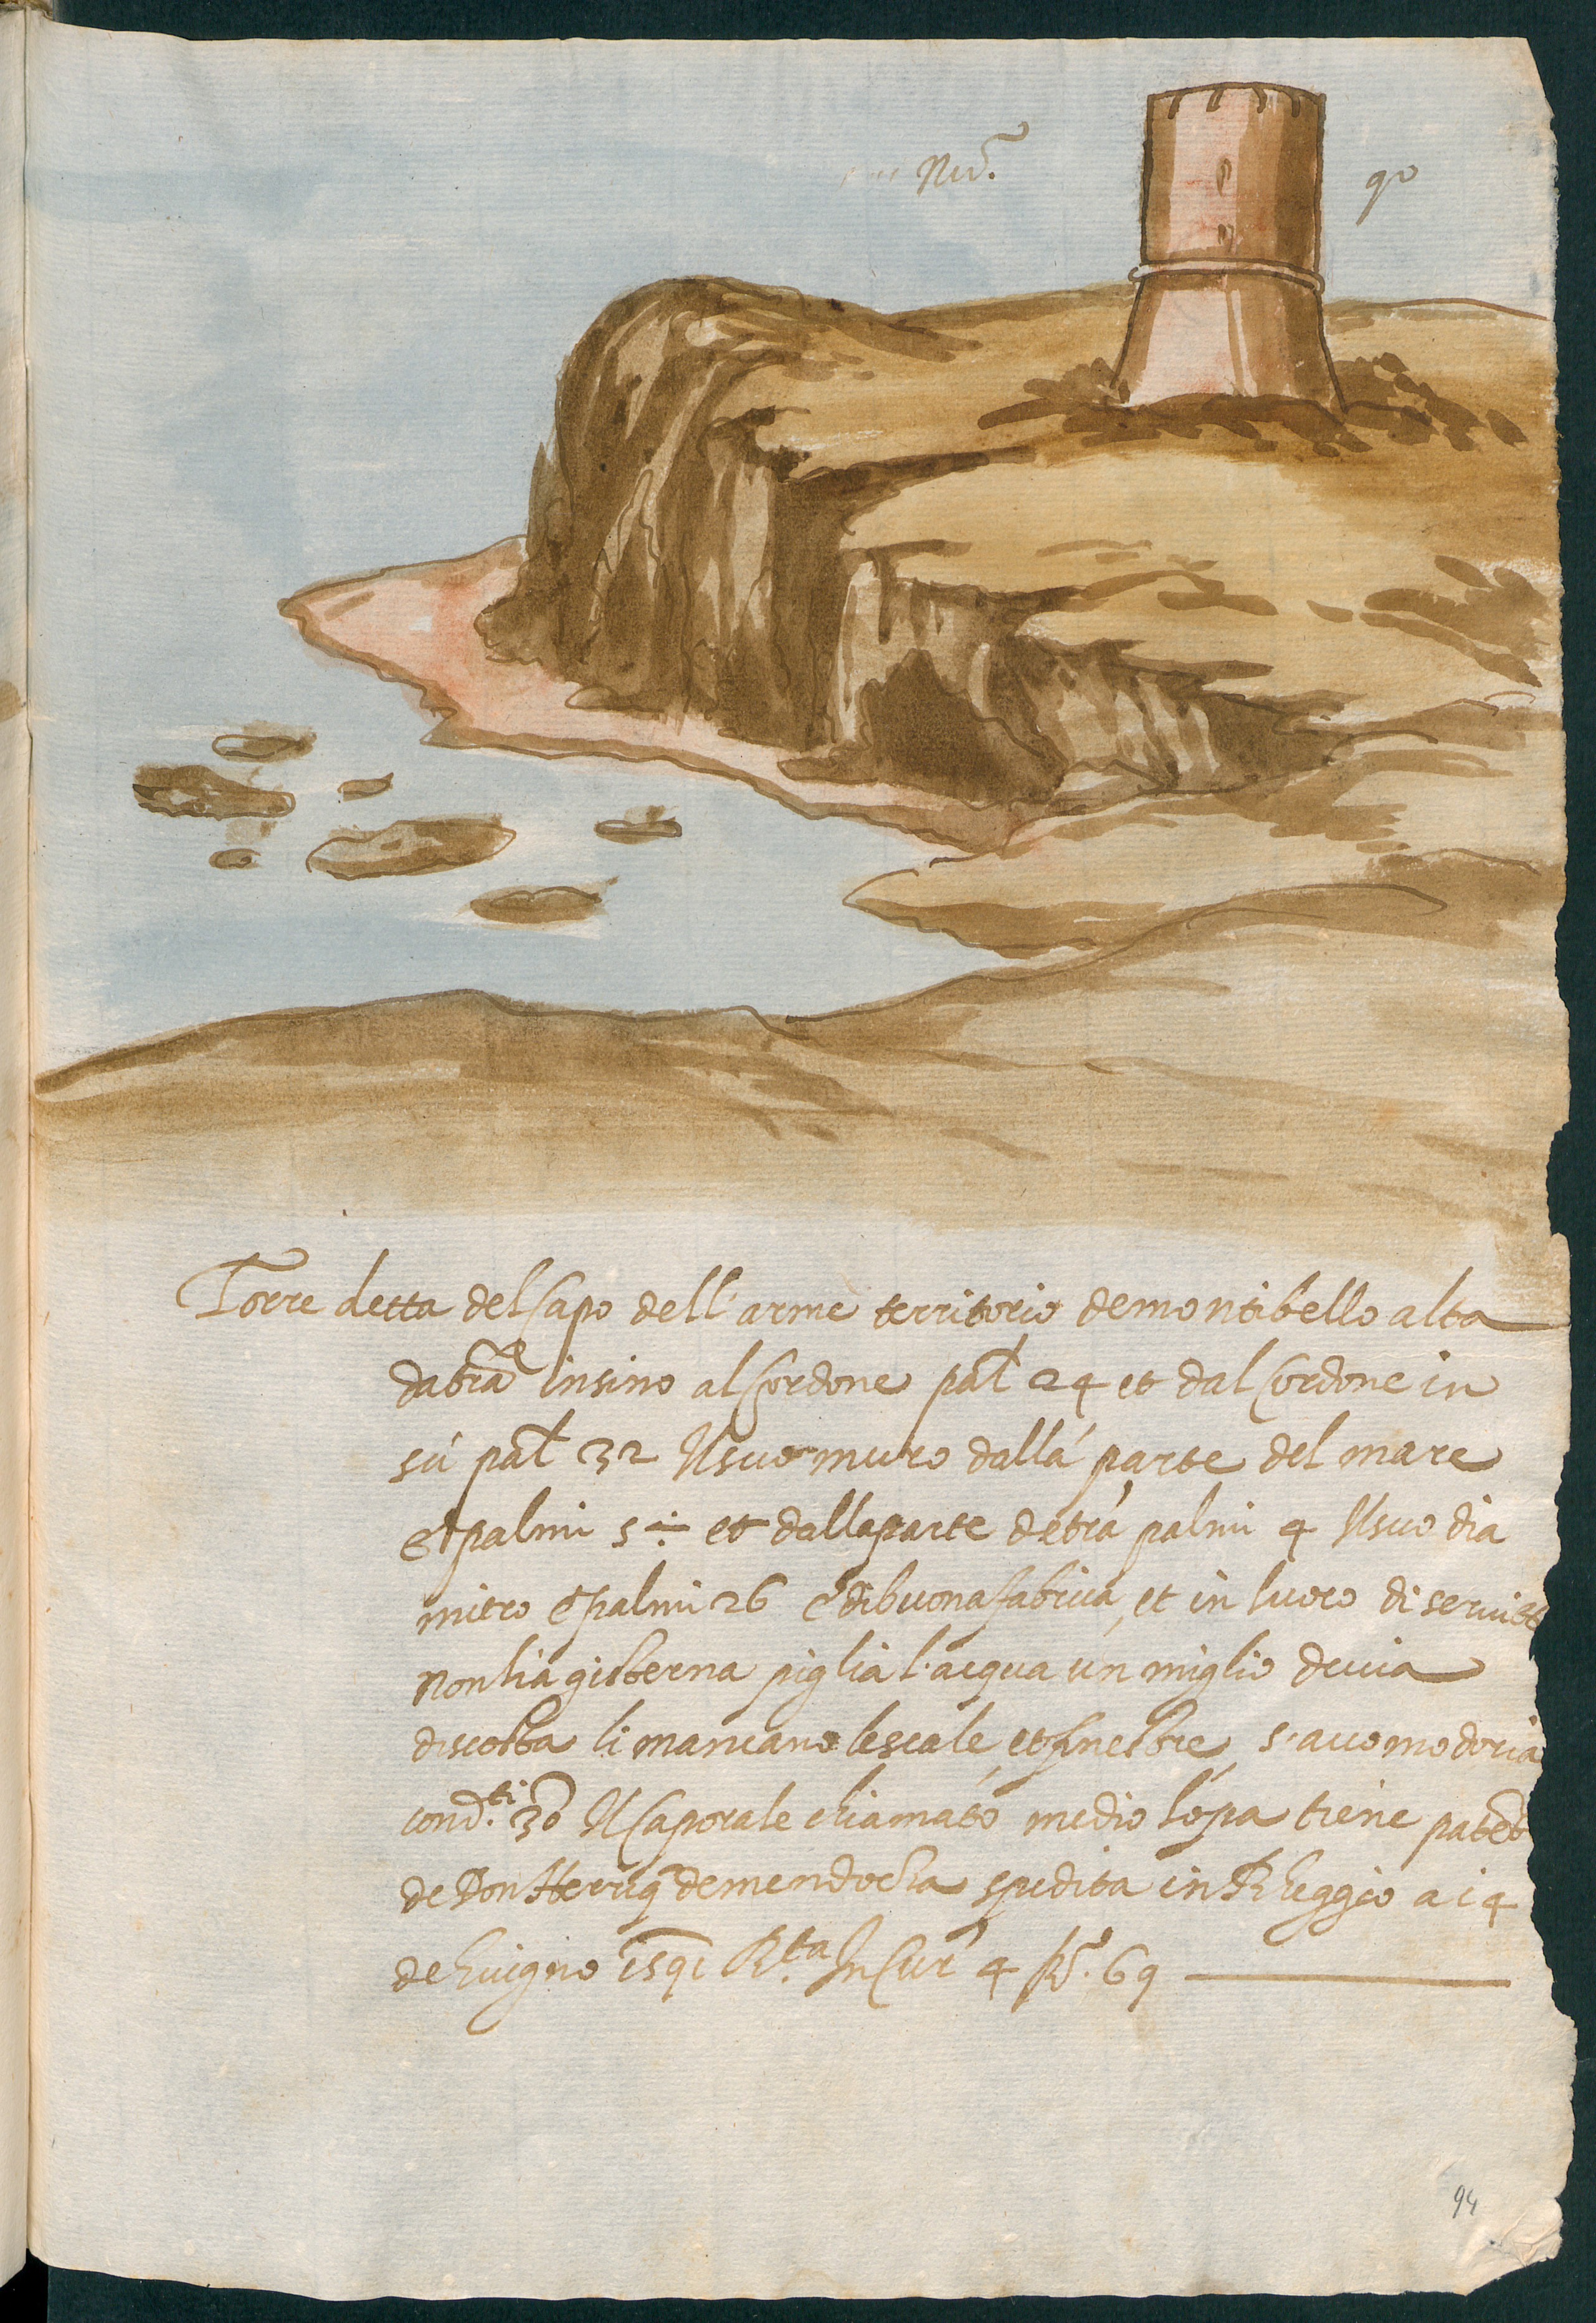 Nu.º 90
Torre detta del Capo dell'arme territorio de montibello alta
da trã insino al Cordone pal 24 et dal Cordone in
sú pal 32 Il suo muro dallá parte del mare
è palmi 5 ÷ et dalla parte detrá palmi 4 Il suo dia
mitro è palmi 26 è di buona fabrica, et in luoco di servitt
non há gisterna piglia l'acqua un miglio de via
discosta li mancano le scale, et finestre s'accomodoria
con d.ti 30 Il Caporale chiamato medio lópa tiene patẽt
de Don Herriq̃ de mendocha spedita in Rheggio a i4
de Guigno i59i R.ta In Cur̃ 4 R̃. 69
94